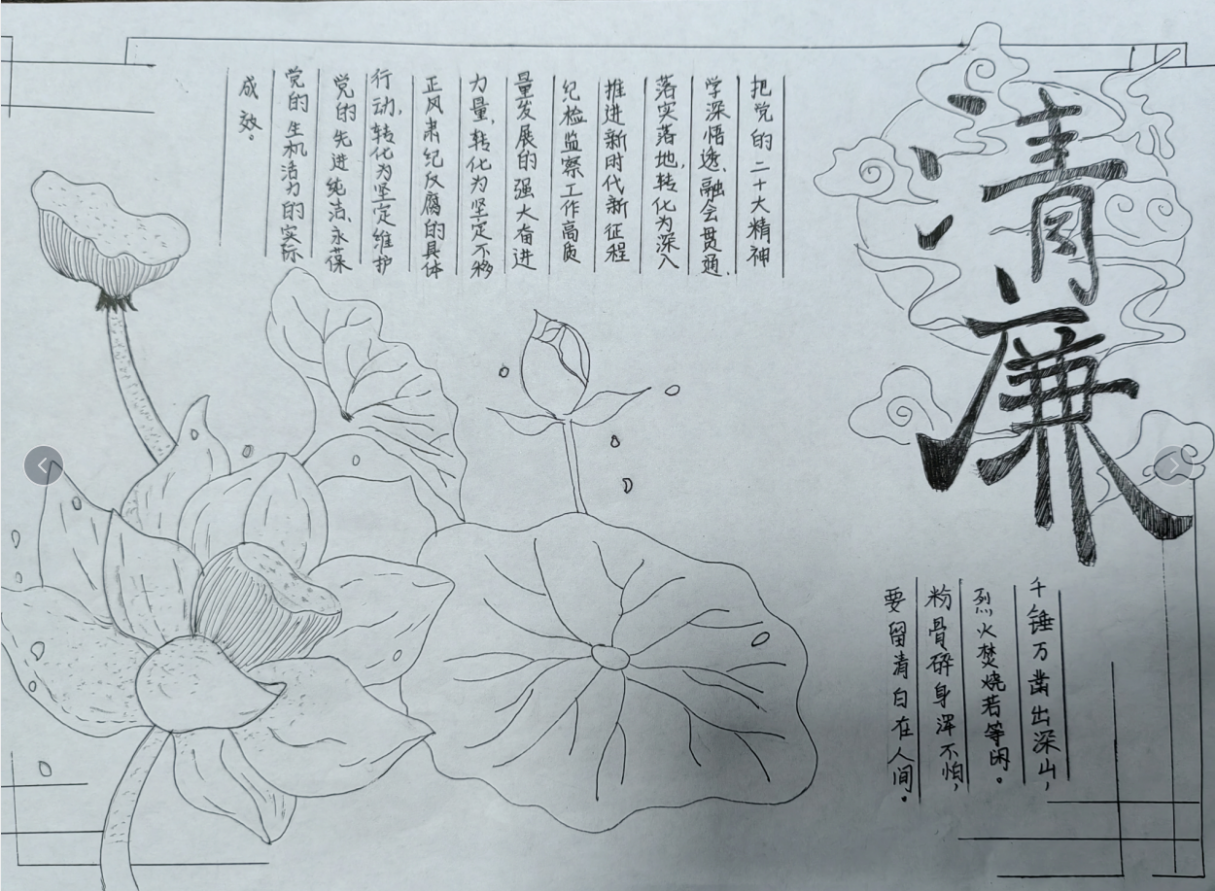 清廉
把党的二十大精神
学深悟透、融会贯通、
落实落地,转化为深入
推进新时代新征程
纪检监察工作高质
量发展的强大奋进
力量,转化为坚定不移
正风肃纪反腐的具体
行动,转化为坚定维护
党的先进纯洁、永葆
党的生机活力的实际
成效。
千锤万凿出深山,
烈火焚烧若等闲。
粉骨碎身浑不怕,
要留清白在人间。